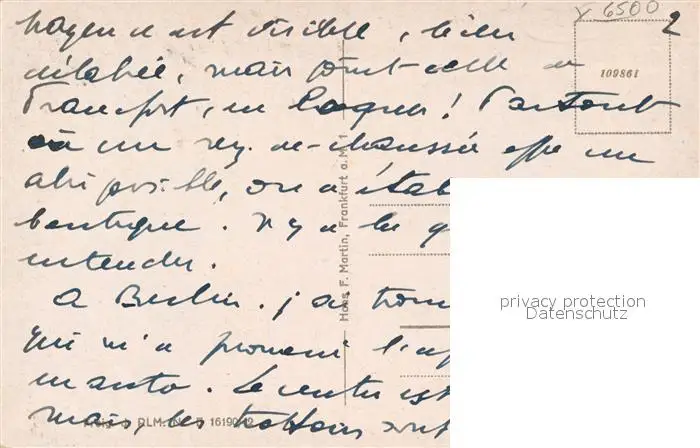 x 6500
2
hagen est visible, bien
délabrée, mais point celle de
Francfort, en
109861
Partout
où un rez-de-chaussée offre un
abri possible, on a établ
boutique. Il y a les
entendu.
A Berlin. j'ai trouv
qui m'a promené l'ap
en auto. Le centre est
mais, les trottoirs sont
Hans F. Martin, Frankfurt a. M. 1
DLM. 16190/42
privacy protection
Datenschutz